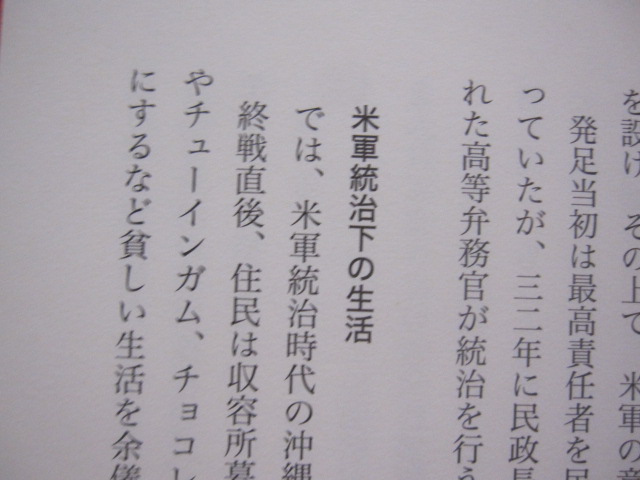 を設け、その上で、米軍の意
発足当初は最高責任者を民
っていたが、三二年に民政長
れた高等弁務官が統治を行う
米軍統治下の生活
では、米軍統治時代の沖縄
終戦直後、住民は収容所暮
やチューインガム、チョコレ
にするなど貧しい生活を余儀